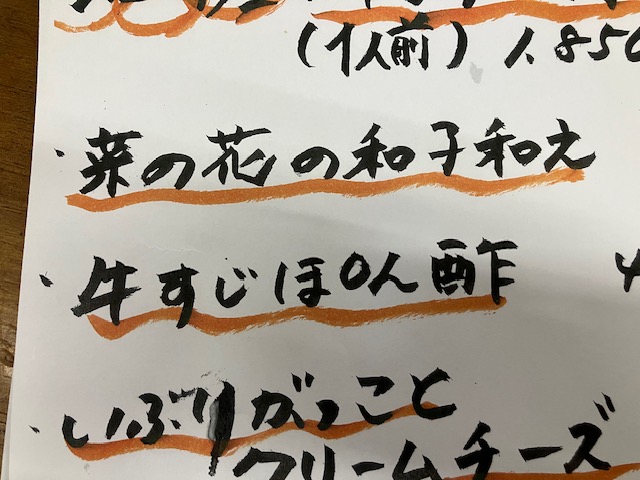 (1人前) 1,850
・菜の花の和子和え
・牛すじぽん酢
・いぶりがっこと
クリームチーズ